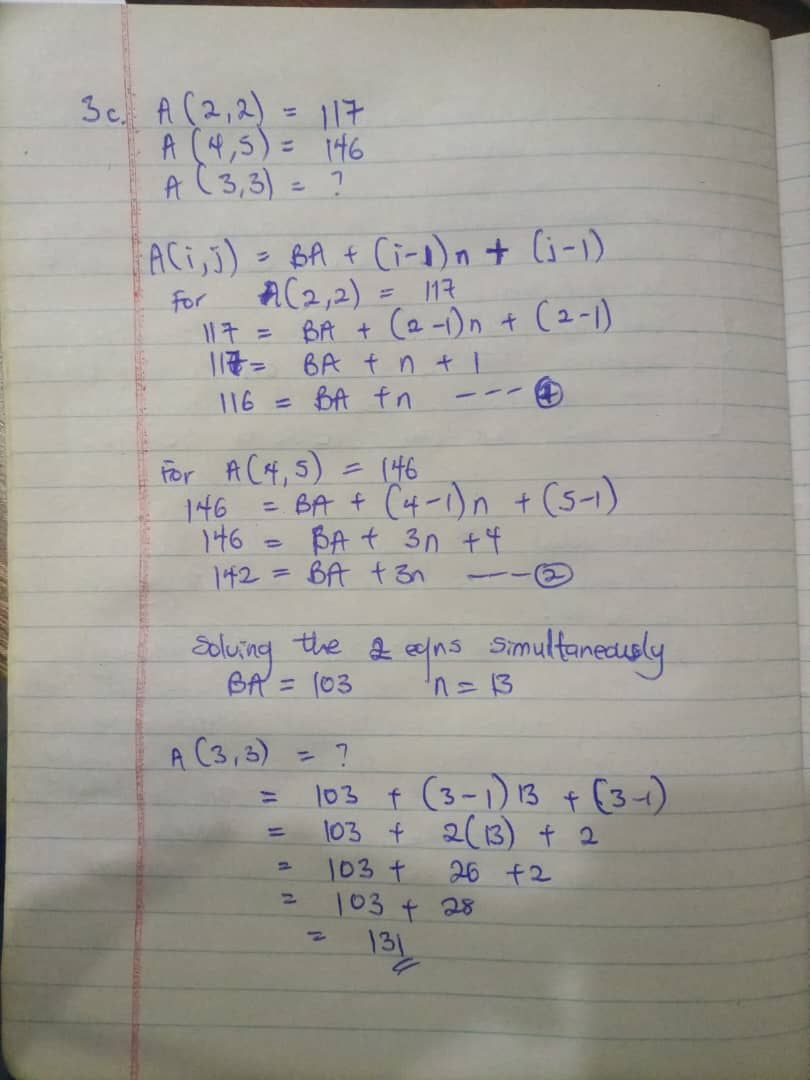 3c. A(2,2) = 117
A(4,5) = 146
A(3,3) = ?
A(i,j) = BA + (i-1)n + (j-1)
For A(2,2) = 117
117 = BA + (2-1)n + (2-1)
117 = BA + n + 1
116 = BA + n ---①
For A(4,5) = 146
146 = BA + (4-1)n + (5-1)
146 = BA + 3n + 4
142 = BA + 3n ---②
Solving the 2 eqns simultaneously
BA = 103 n = 13
A(3,3) = ?
= 103 + (3-1)13 + (3-1)
= 103 + 2(13) + 2
= 103 + 26 + 2
= 103 + 28
= 131